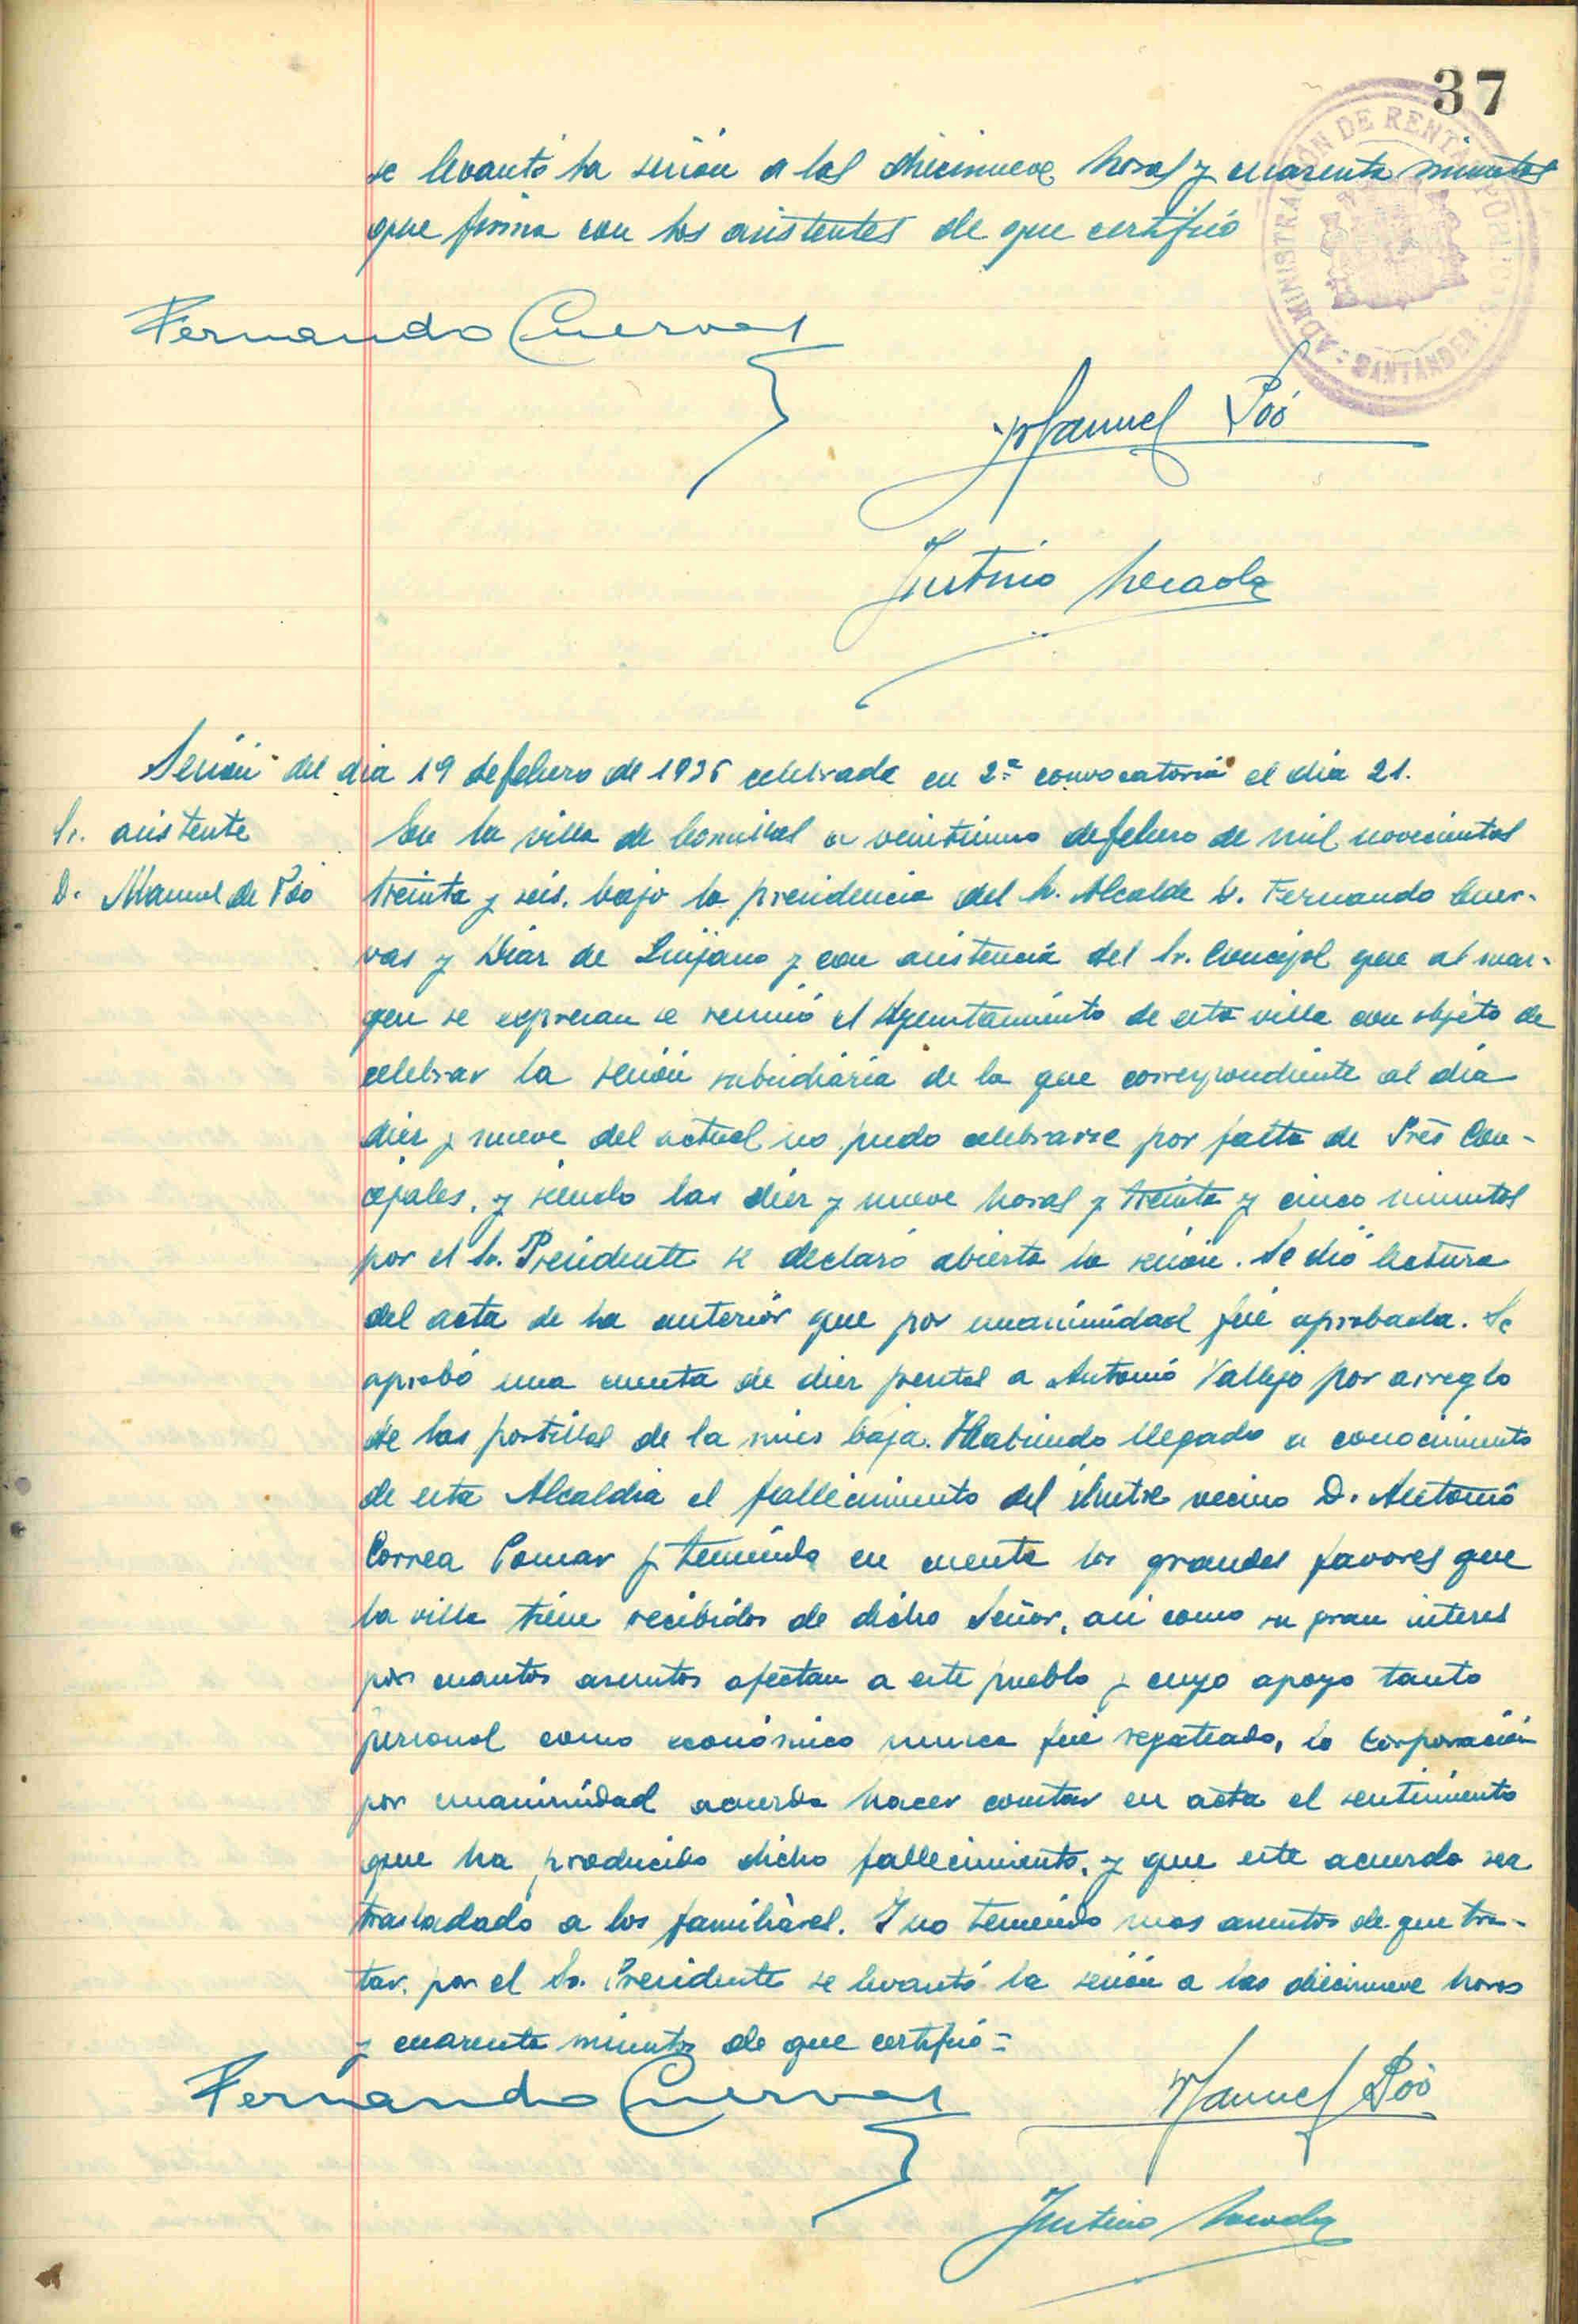 37
ADMINISTRACIÓN DE RENTAS PÚBLICAS : SANTANDER :
se levantó la sesión a las diecinueve horas y cuarenta minutos
que firma con los asistentes de que certifico
Fernando Cuervas
Manuel Póo
Justino
Sesión del dia 19 de febrero de 1936 celebrada en 2ª convocatoria el dia 21.
Sr. asistente
D. Manuel de Póo
En la villa de Comillas a veintiuno de febrero de mil novecientos
treinta y seis, bajo la presidencia del Sr. Alcalde D. Fernando Cuer-
vas y Diaz de Quijano y con asistencia del Sr. Concejal que al mar-
gen se expresan se reunió el Ayuntamiento de esta villa con objeto de
celebrar la sesión subsidiaria de la que correspondiente al dia
diez y nueve del actual no pudo celebrarse por falta de Sres Con-
cejales, y siendo las diez y nueve horas y treinta y cinco minutos
por el Sr. Presidente se declaró abierta la sesión. Se dió lectura
del acta de la anterior que por unanimidad fué aprobada. Se
aprobó una cuenta de diez pesetas a Antonio Vallejo por arreglo
de las portillas de la mies baja. Habiendo llegado a conocimiento
de esta Alcaldia el fallecimiento del ilustre vecino D. Antonio
Correa Pomar y teniendo en cuenta los grandes favores que
la villa tiene recibidos de dicho Señor, asi como su gran interes
por cuantos asuntos afectan a este pueblo y cuyo apoyo tanto
personal como económico nunca fué regateado, la Corporación
por unanimidad acuerda hacer constar en acta el sentimiento
que ha producido dicho fallecimiento, y que este acuerdo sea
trasladado a los familiares. Y no teniendo mas asuntos de que tra-
tar, por el Sr. Presidente se levantó la sesión a las diecinueve horas
y cuarenta minutos de que certifico =
Fernando Cuervas
Manuel Póo
Justino